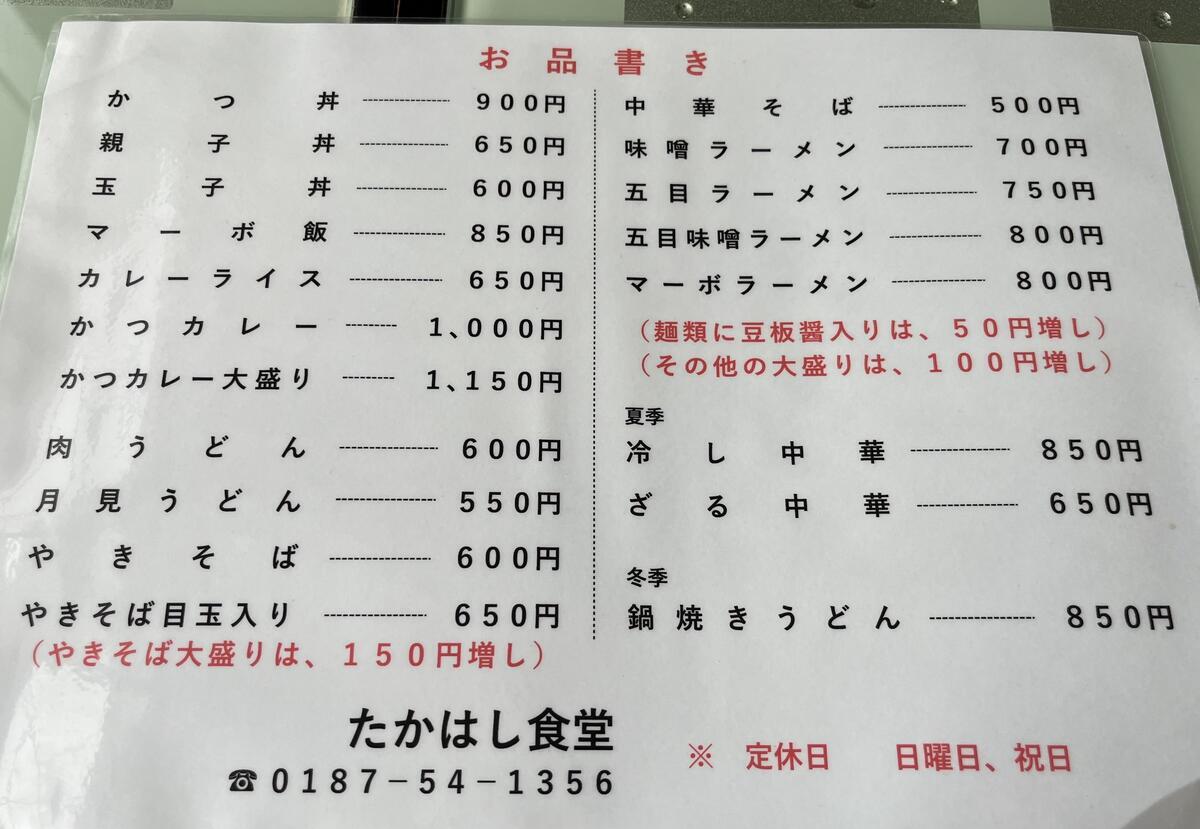 お品書き
かつ丼 900円
親子丼 650円
玉子丼 600円
マーボ飯 850円
カレーライス 650円
かつカレー 1、000円
かつカレー大盛り 1、150円
肉うどん 600円
月見うどん 550円
やきそば 600円
やきそば目玉入り 650円
（やきそば大盛りは、150円増し）
中華そば 500円
味噌ラーメン 700円
五目ラーメン 750円
五目味噌ラーメン 800円
マーボラーメン 800円
（麺類に豆板醤入りは、50円増し）
（その他の大盛りは、100円増し）
夏季
冷し中華 850円
ざる中華 650円
冬季
鍋焼きうどん 850円
たかはし食堂
☎0187−54−1356
※ 定休日 日曜日、祝日